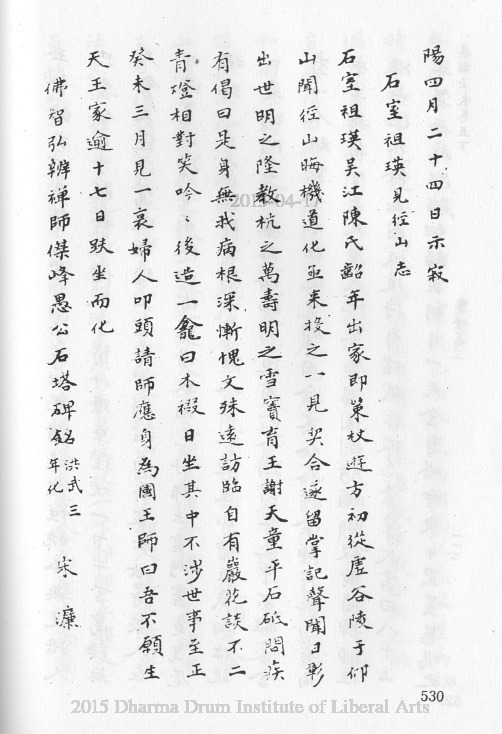 陽四月二十四日示寂
石室祖瑛見徑山志
石室祖瑛吳江陳氏齠年出家即策杖遊方初從虛谷陵于仰
山聞徑山晦機道化亟来投之一見契合遂留掌記聲聞日彰
出世明之隆教杭之萬壽明之雪竇育王謝天童平石砥問疾
有偈曰是身無我病根深慚愧文殊遠訪臨自有巖花談不二
青燈相對笑吟〻後造一龕曰木裰日坐其中不涉世事至正
癸未三月見一衰婦人叩頭請師應身為國王師曰吾不願生
天王家逾十七日趺坐而化
佛智弘辨禅師傑峰愚公石塔碑銘 洪武三年化 宋濂
530
2015-04-17
2015 Dharma Drum Institute of Liberal Arts